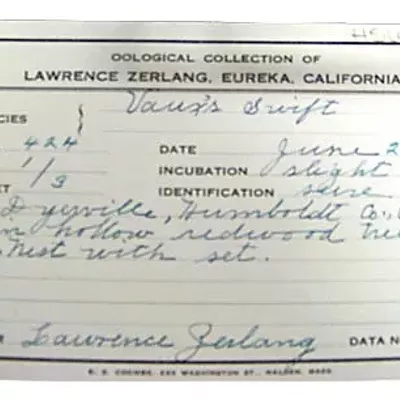 OOLOGICAL COLLECTION OF
LAWRENCE ZERLANG, EUREKA, CALIFORNIA
CIES } Vaux's Swift
424 DATE June 2
1/3 INCUBATION slight
ET IDENTIFICATION sure
Dyerville, Humboldt Co.,
in hollow redwood tree
Nest with set.
R Lawrence Zerlang DATA N